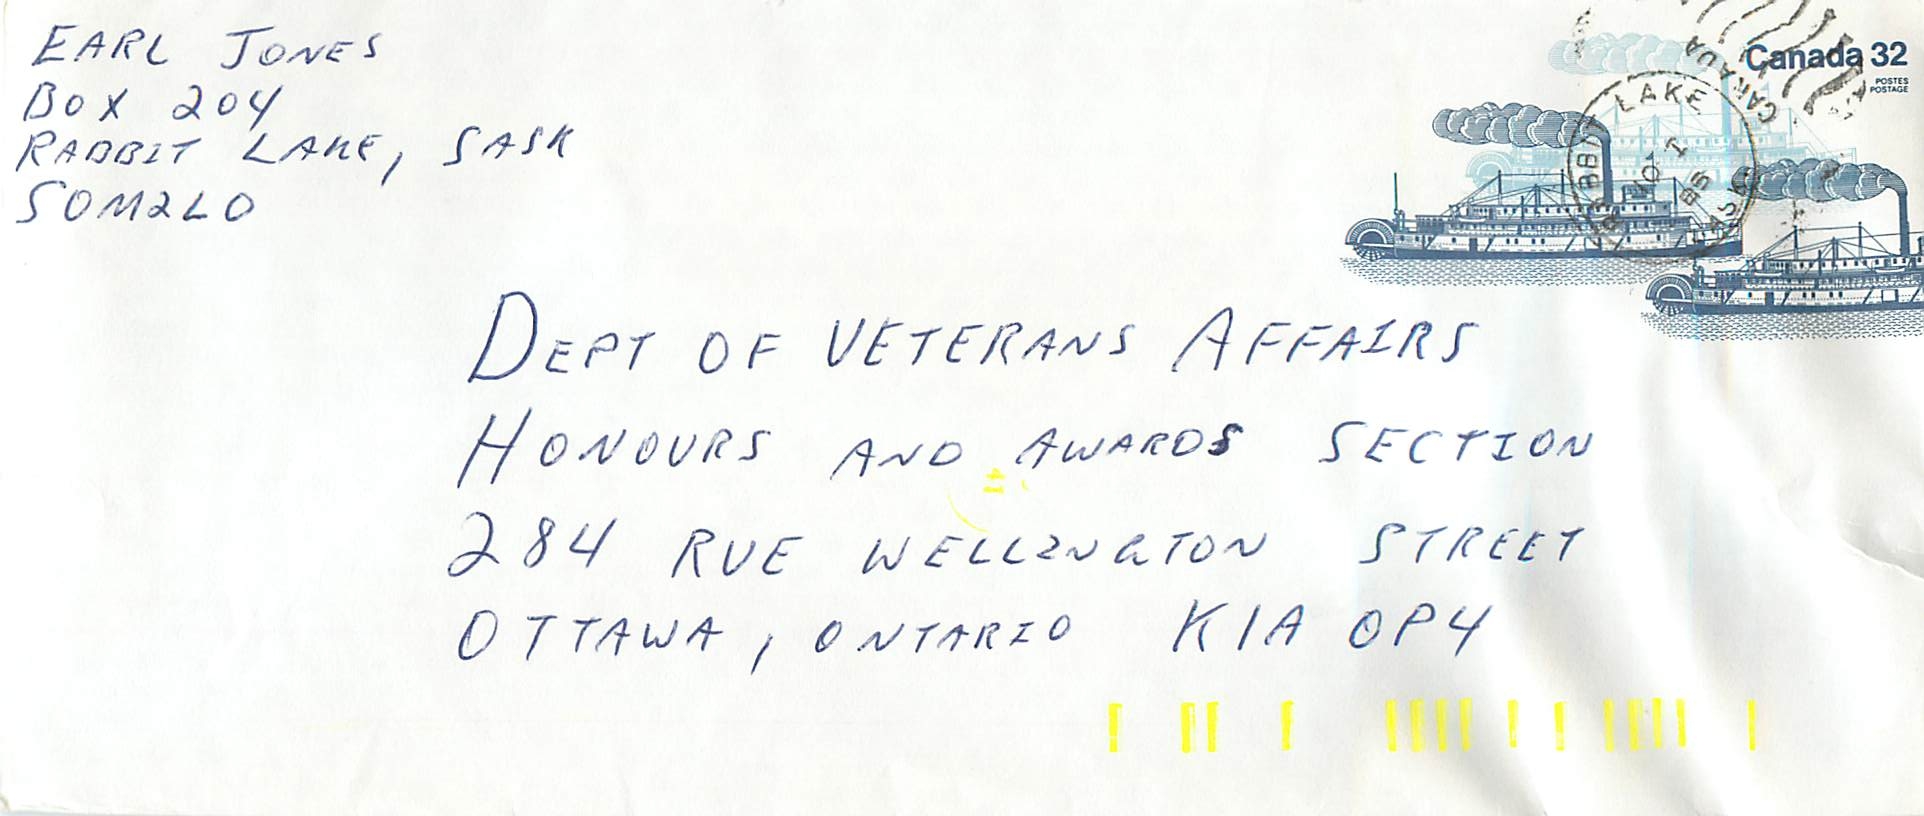 EARL JONES
BOX 204
RABBIT LAKE, SASK
S0M2L0
Canada 32
POSTES
POSTAGE
RABBIT LAKE
SASK
CANADA
DEPT OF VETERANS AFFAIRS
HONOURS AND AWARDS SECTION
284 RUE WELLINGTON STREET
OTTAWA, ONTARIO K1A 0P4